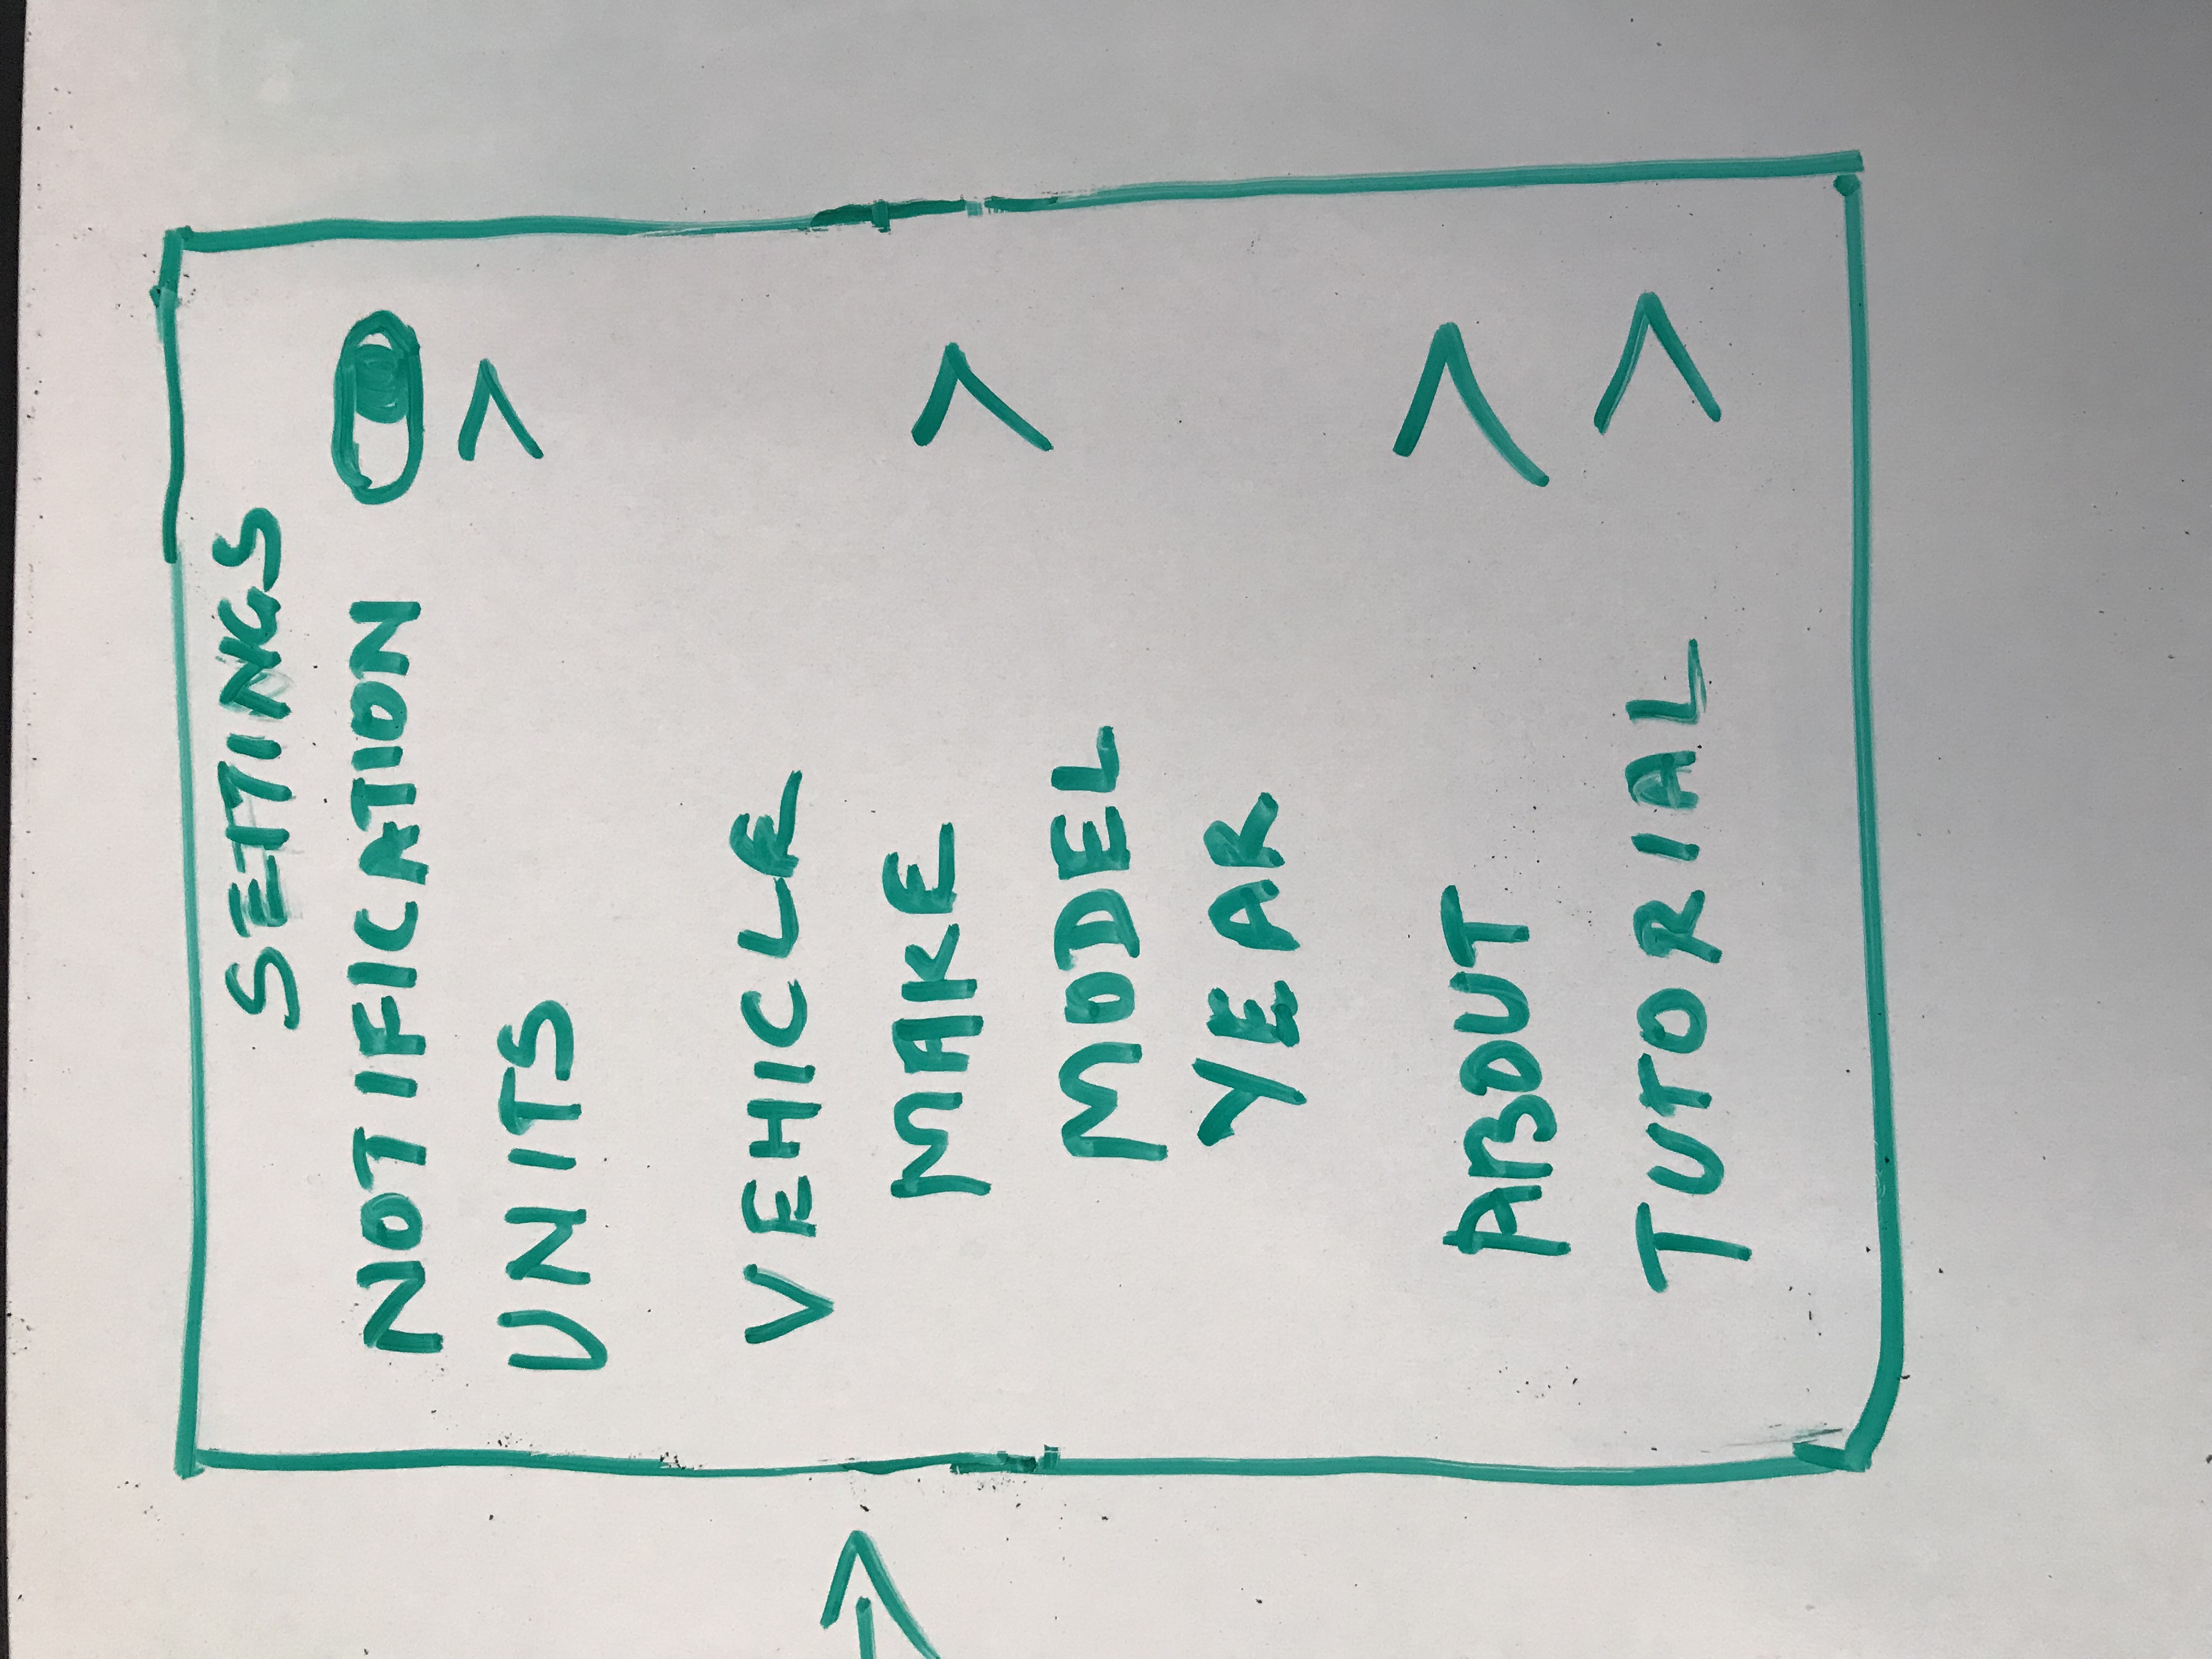 SETTINGS
NOTIFICATION
UNITS >
VEHICLE
MAKE >
MODEL
YEAR
ABOUT >
TUTORIAL >